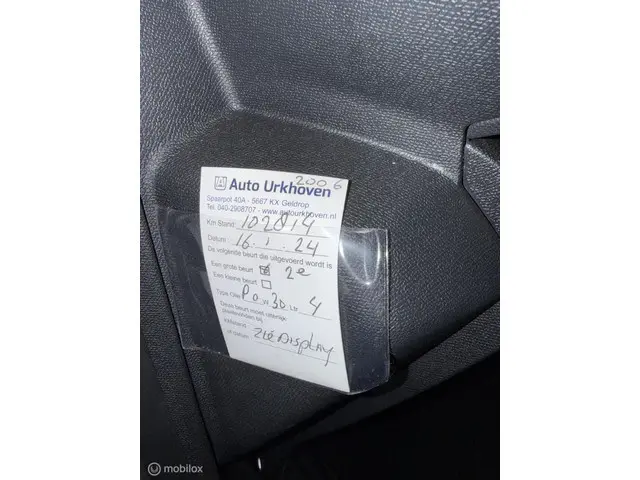 2006
Auto Urkhoven
Spaarpot 40A - 5667 KX Geldrop
Tel. 040-2968707 - www.autourkhoven.nl
Km Stand: 102814
Datum: 16.1.24
De volgende beurt die uitgevoerd wordt is
Een grote beurt 2e
Een kleine beurt
Type Olie: 0W30 Ltr 4
Deze beurt moet uiterlijk
of datum: zie Display
mobilox